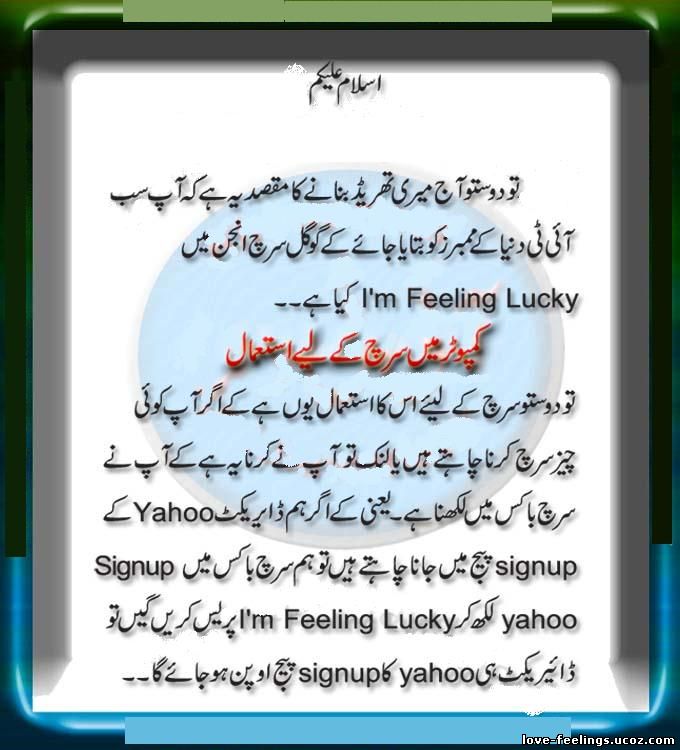 اسلام علیکم
تو دوستو آج میری تھریڈ بنانے کا مقصد یہ ہے کہ آپ سب
آئی ٹی دنیا کے ممبرز کو بتایا جائے کے گوگل سرچ انجن میں
I'm Feeling Lucky کیا ہے۔۔
کمپوٹر میں سرچ کے لیے استعمال
تو دوستو سرچ کے لیئے اس کا استعمال یوں ہے کے اگر آپ کوئی
چیز سرچ کرنا چاہتے ہیں یا لنک تو آپ نے کرنا یہ ہے کے آپ نے
سرچ باکس میں لکھنا ہے۔ یعنی کے اگر ہم ڈایریکٹ Yahoo کے
signup پیج میں جانا چاہتے ہیں تو ہم سرچ باکس میں Signup
yahoo لکھ کر I'm Feeling Lucky پریس کریں گیں تو
ڈائیریکٹ ہی yahoo کا signup پیج اوپن ہو جائے گا۔۔
love-feelings.ucoz.com